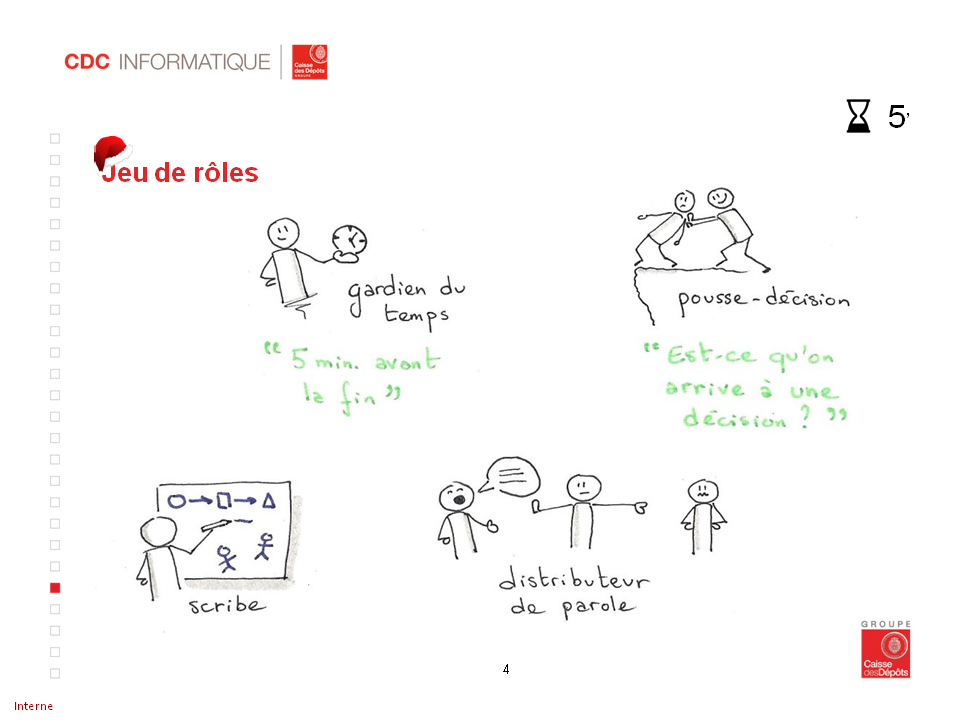 CDC INFORMATIQUE
Caisse
des Dépôts
GROUPE
5'
Jeu de rôles
gardien du
temps
pousse-décision
“ 5 min. avant
la fin ”
“ Est-ce qu'on
arrive à une
décision ? ”
scribe
distributeur
de parole
GROUPE
Caisse
desDépôts
4
Interne